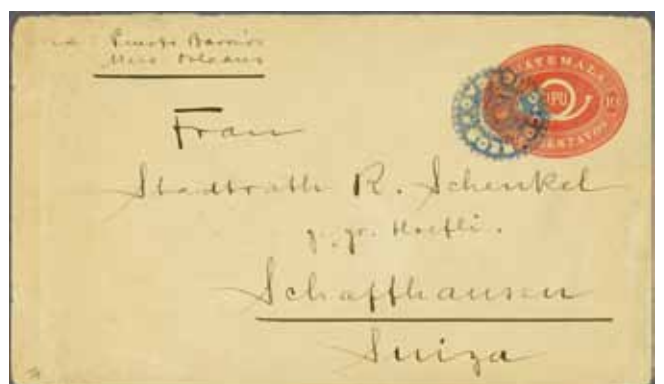 Puerto Barrios
New Orleans
GUATEMALA
UPU
10
CENTAVOS
Frau
Stadtrath R. Schenkel
z. gr. Hoefli.
Schaffhausen
Suiza